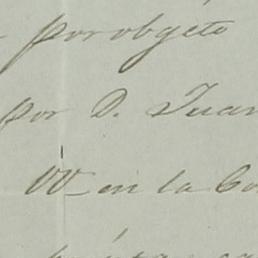 por obgeto
por D. Juan
VV en la Co